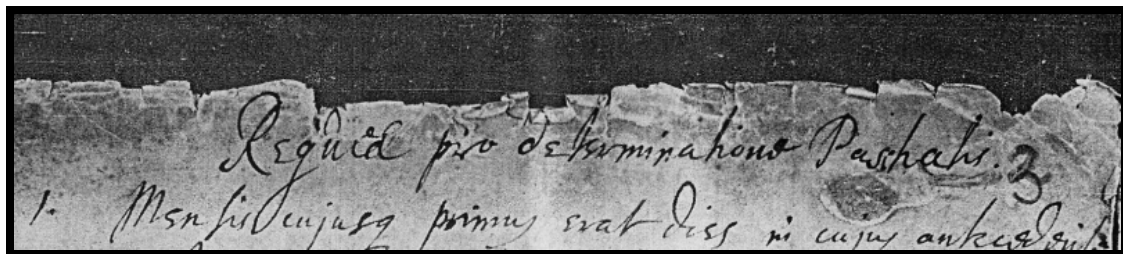 Requid pro determinatione Paschatis. 3
1. Mensis cujusq primus erat dies in cujus antecedent